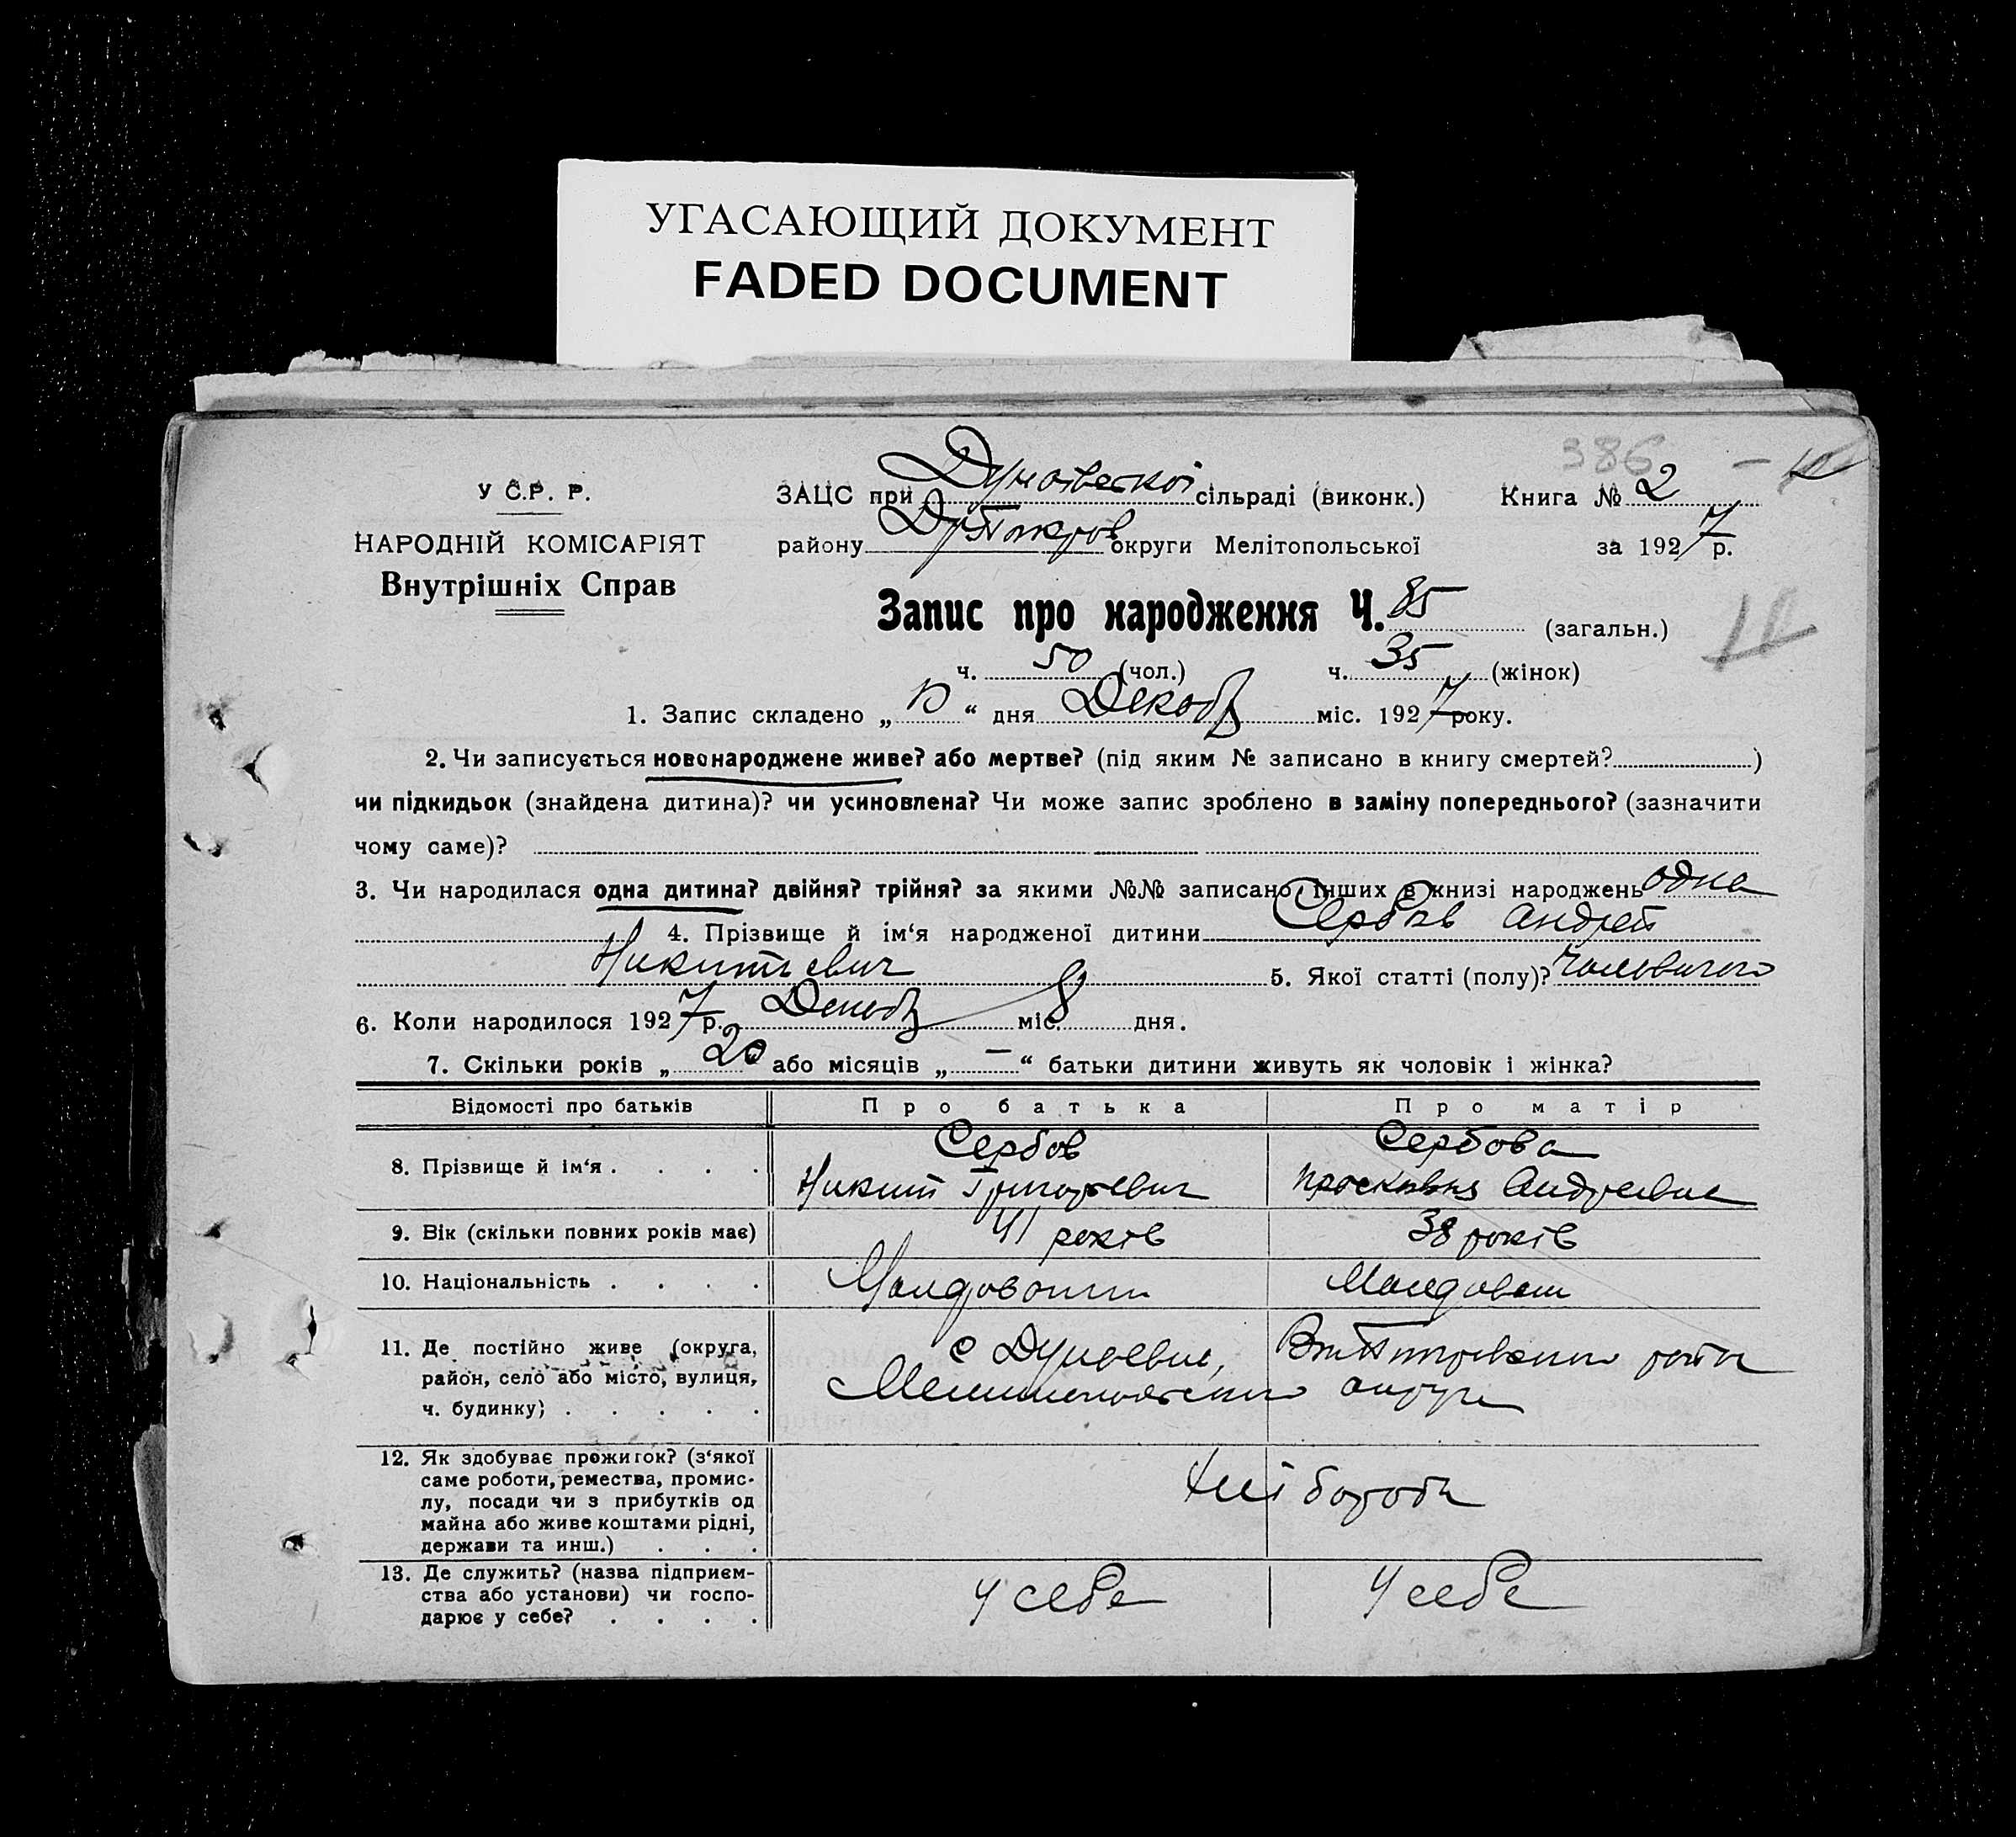 УГАСАЮЩИЙ ДОКУМЕНТ
FADED DOCUMENT
386 2
У С.Р. Р. ЗАЦС при Дунаївської сільраді (виконк.) Книга №
НАРОДНІЙ КОМІСАРІЯТ району округи Мелітопольської за 1927 р.
Внутрішніх Справ
Запис про народження Ч. 85 (загальн.)
ч. 50 (чол.) ч. 35 (жінок)
1. Запис складено „ “ дня Декабр міс. 1927 року.
2. Чи записується новонароджене живе? або мертве? (під яким № записано в книгу смертей? )
чи підкидьок (знайдена дитина)? чи усиновлена? Чи може запис зроблено в заміну попереднього? (зазначити
чому саме)?
3. Чи народилася одна дитина? двійня? трійня? за якими №№ записано інших в книзі народжень одна
4. Прізвище й ім‘я народженої дитини Сербов Андрей
Никитиевич 5. Якої статті (полу)? Чоловичого
6. Коли народилося 1927 р. Декабр міс. 8 дня.
7. Скільки років „ 20 “ або місяців „ — “ батьки дитини живуть як чоловік і жінка?
Відомості про батьків Про батька Про матір
8. Прізвище й ім‘я . . . . Сербов Сербова
Никит Григорьевич Андреевна
9. Вік (скільки повних років має) 41 років 38 років
10. Національність . . . . Молдован Молдован
11. Де постійно живе (округа,
район, село або місто, вулиця,
ч. будинку) . . . . .
с Дунаевка,
округи
12. Як здобуває прожиток? (з‘якої
саме роботи, ремества, промис-
лу, посади чи з прибутків од
майна або живе коштами рідні,
держави та инш.) . . .
Хліборобы
13. Де служить? (назва підприєм-
ства або установи) чи госпо-
дарює у себе? . . . .
У себе У себе